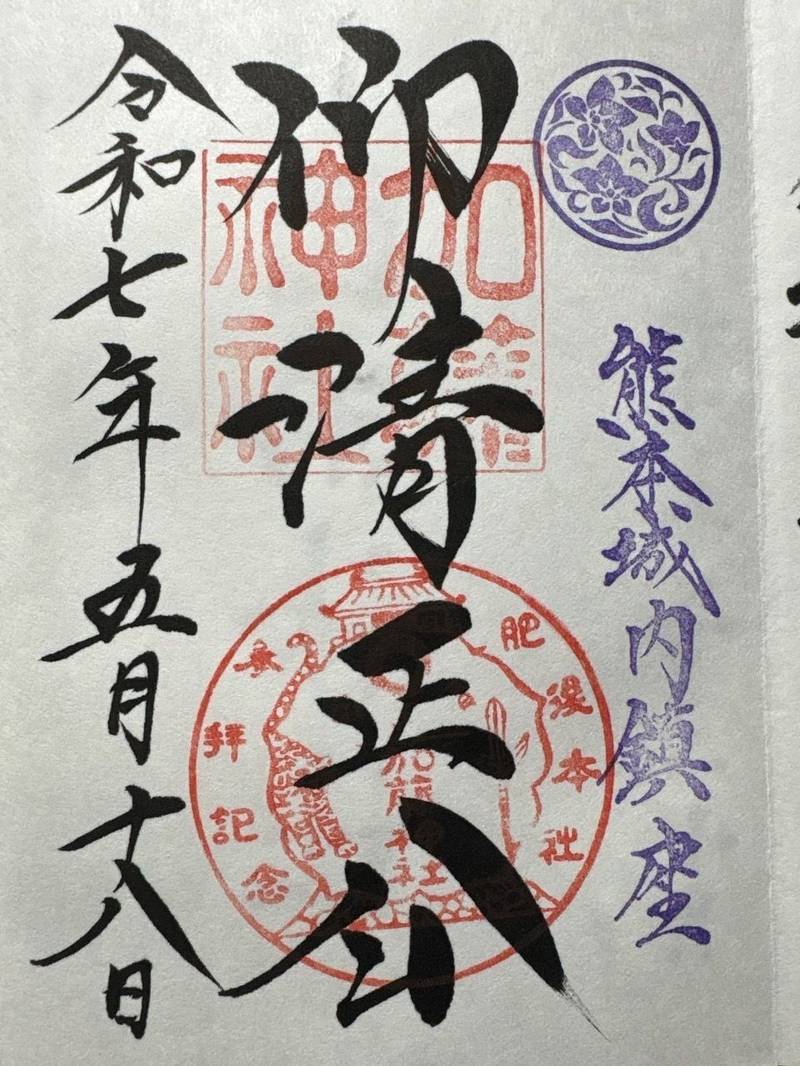 熊本城内鎮座
仰清正公
加藤
神社
肥後本社
加藤神社
参拝記念
令和七年五月十八日